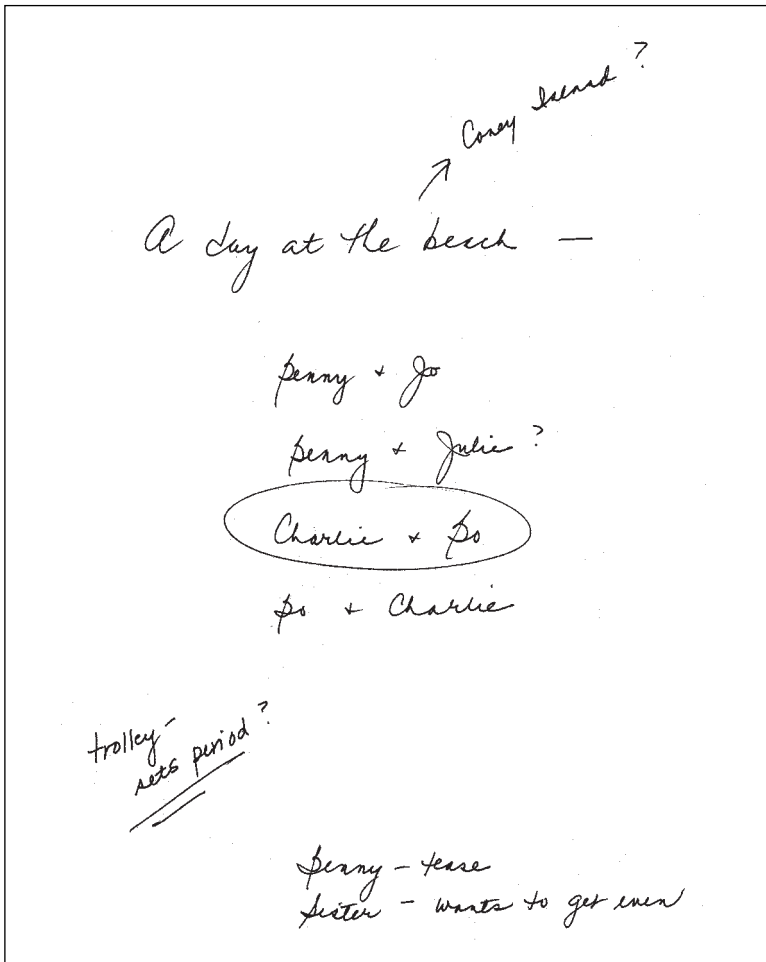 Coney Island ?
A day at the beach —
penny + Jo
penny + Julie ?
Charlie + po
po + Charlie
trolley -
sets period ?
penny - tease
sister - wants to get even